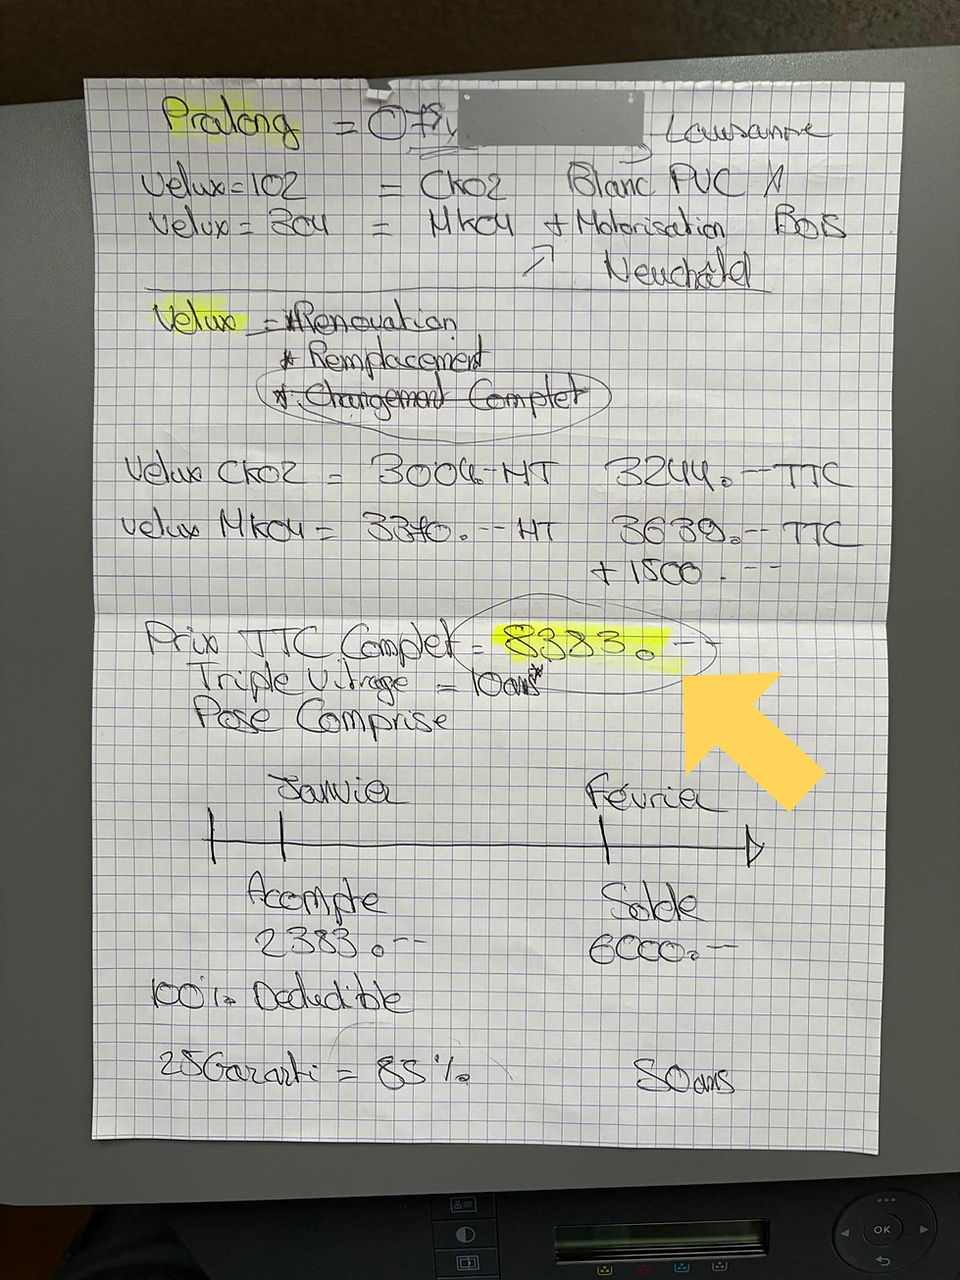 Pralong = 079 Lausanne
Velux = 102 = CK02 Blanc PVC
Velux = 304 = MK04 + Motorisation Bois
Neuchâtel
Velux = * Renovation
* Remplacement
* Changement Complet
Velux CK02 = 3004.- HT 3244.-- TTC
Velux MK04 = 3370.-- HT 3639.-- TTC
+ 1500.--
Prix TTC Complet = 8383.--
Triple Vitrage = 10ans*
Pose Comprise
Janvier Février
Acompte Solde
2383.-- 6000.--
100% Dedudible
25Garanti = 85% 50ans
OK